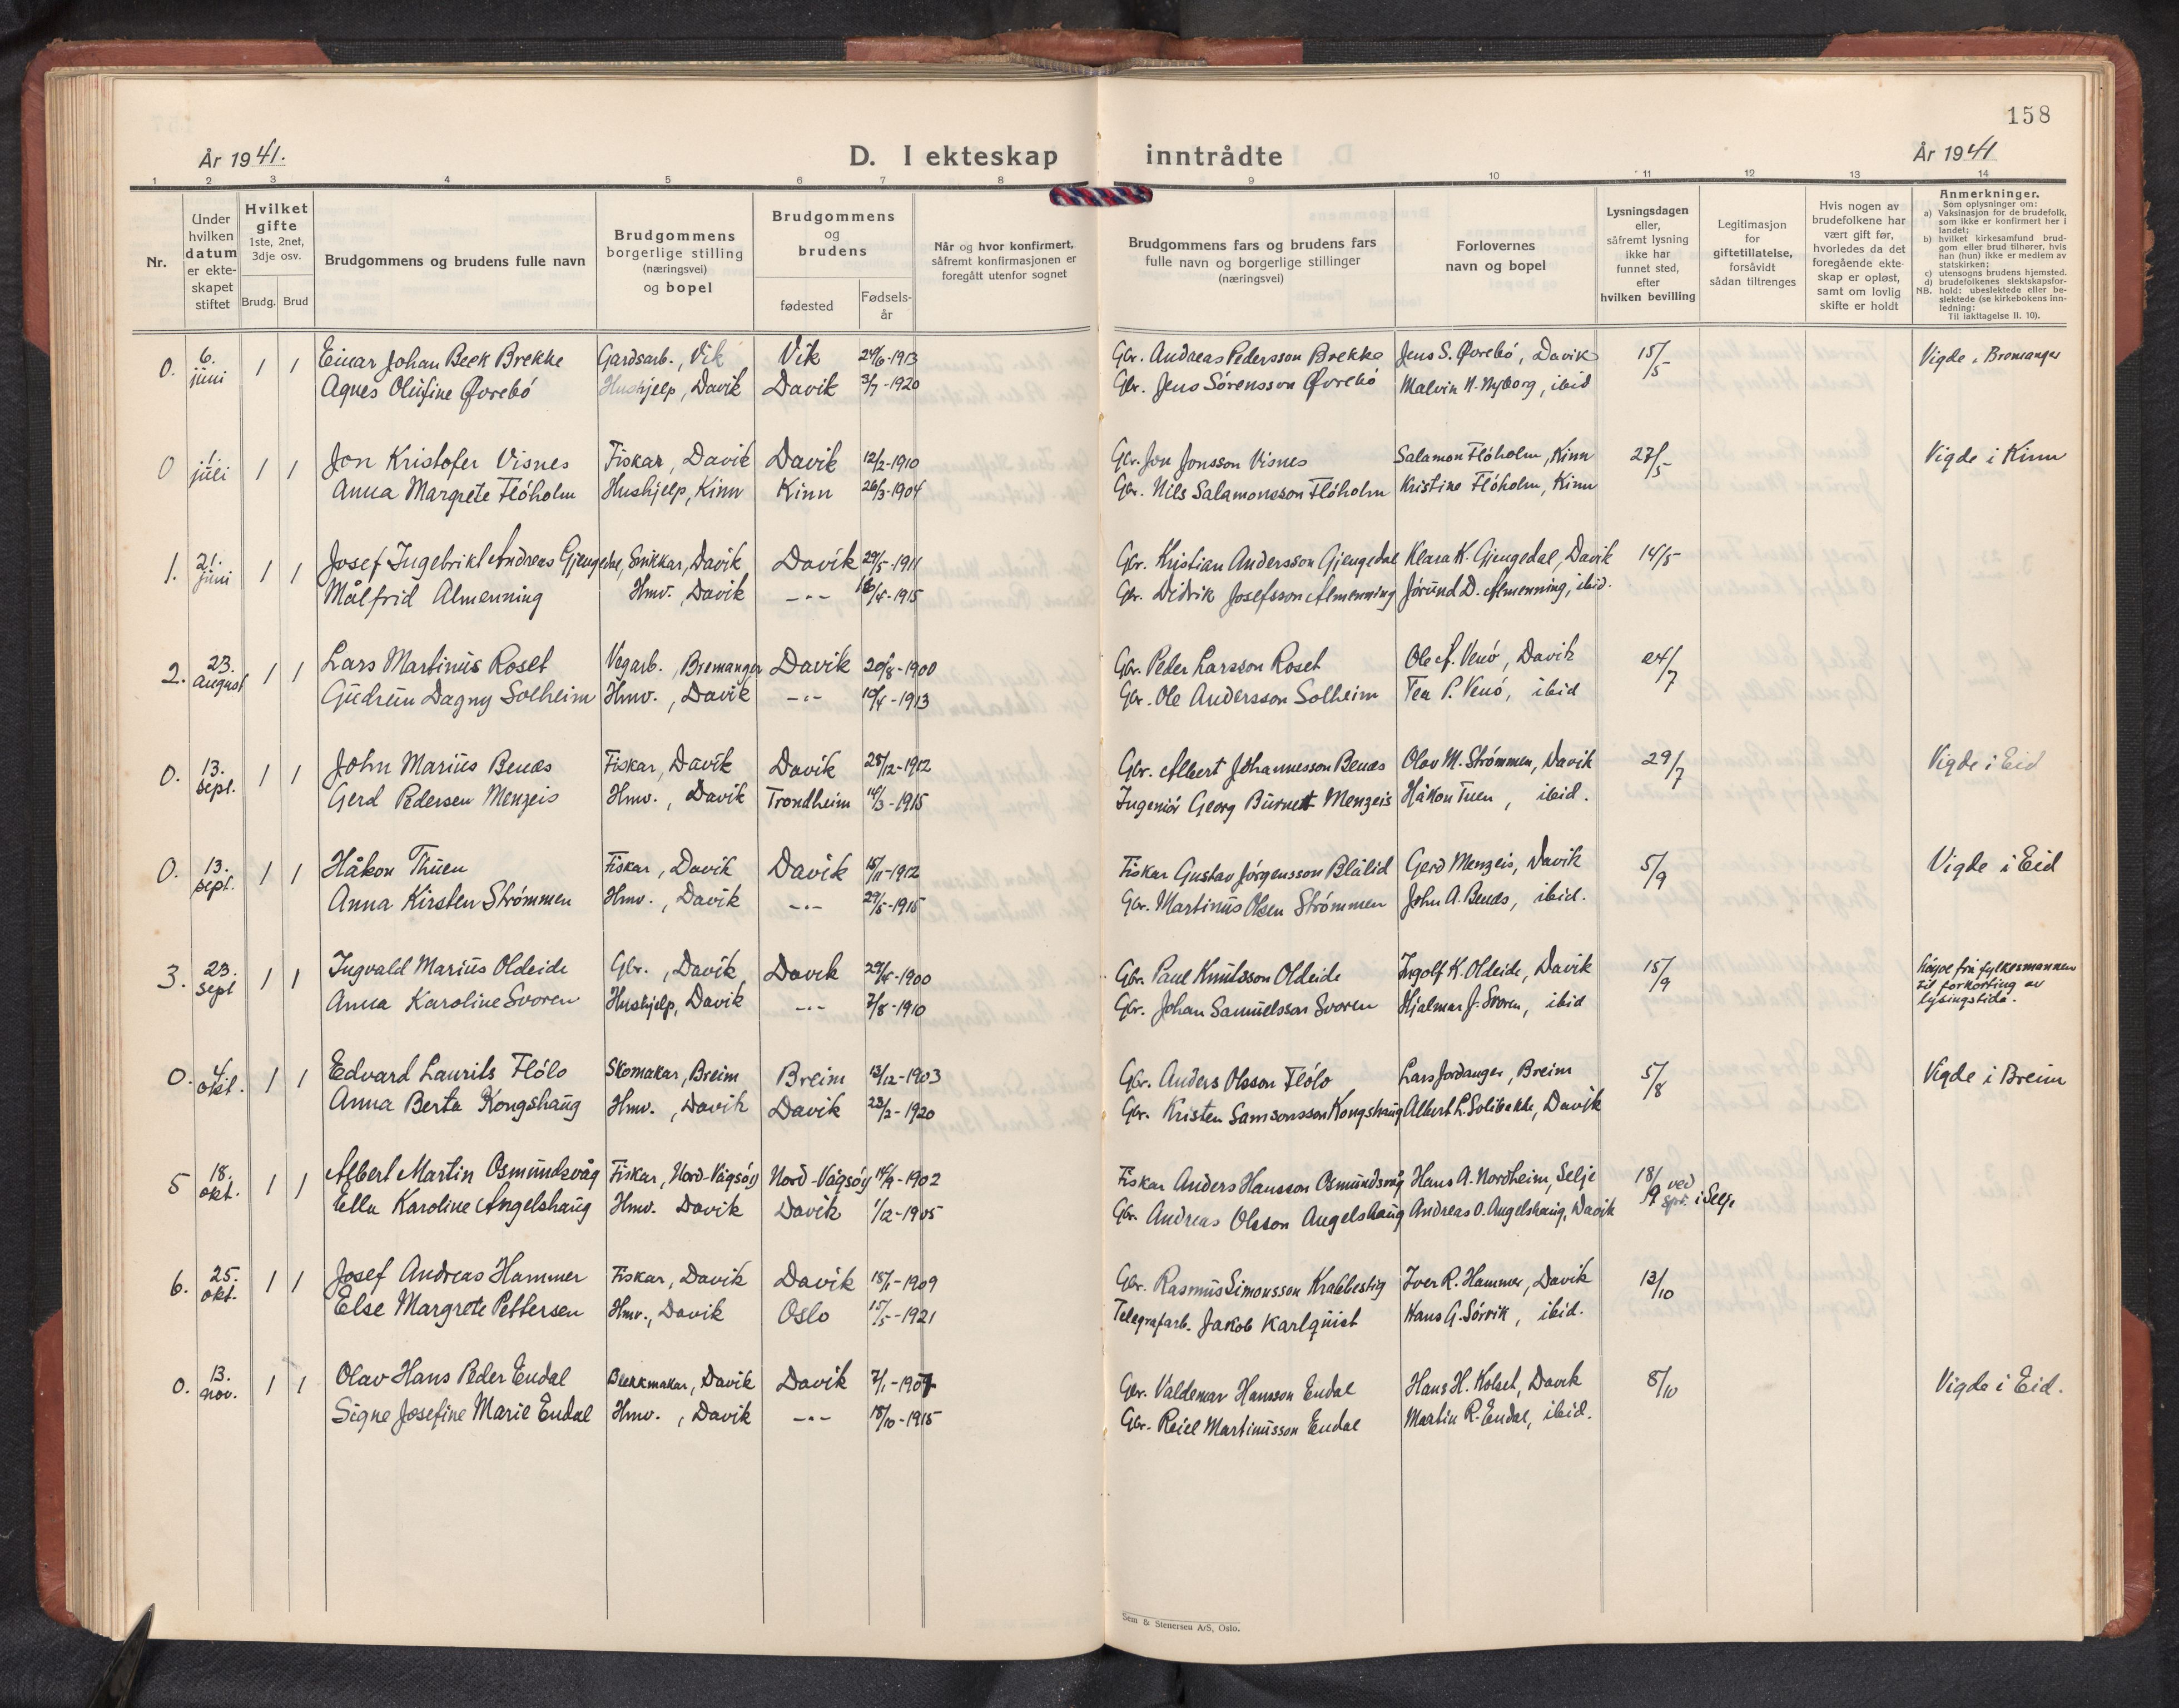 158
År 1941.
D. I ekteskap inntrådte
År 1941
1 2 3 4 5 6 7 8 9 10 11 12 13 14
Nr.
Under hvilken datum er ekte-skapet stiftet
Hvilket gifte 1ste, 2net, 3dje osv.
Brudg. Brud
Brudgommens og brudens fulle navn
Brudgommens borgerlige stilling (næringsvei) og bopel
Brudgommens og brudens
fødested
Fødsels-år
Når og hvor konfirmert, såfremt konfirmasjonen er foregått utenfor sognet
Brudgommens fars og brudens fars fulle navn og borgerlige stillinger (næringsvei)
Forlovernes navn og bopel
Lysningsdagen eller, såfremt lysning ikke har funnet sted, efter hvilken bevilling
Legitimasjon for giftetillatelse, forsåvidt sådan tiltrenges
Hvis nogen av brudefolkene har vært gift før, hvorledes da det foregående ekte-skap er opløst, samt om lovlig skifte er holdt
Anmerkninger.
Som oplysninger om:
a) Vaksinasjon for de brudefolk, som ikke er konfirmert her i landet;
b) hvilket kirkesamfund brud-gom eller brud tilhører, hvis han (hun) ikke er medlem av statskirken;
c) utensogns brudens hjemsted.
d) brudefolkenes slektskapsfor-hold: ubeslektede eller be-slektede (se kirkebokens inn-ledning:
NB. Til iakttagelse II. 10).
0. 6. juni 1 1 Einar Johan Beek Brekke Gardsarb., Vik Vik 24/6-1913 Gbr. Andreas Pedersson Brekke Jens S. Øvrebó, Davik 15/5 Vigde i Bremanger
Agnes Olufine Øvrebó Hushjelp, Davik Davik 3/7-1920 Gbr. Jens Sórensson Øvrebó Malvin N. Nyborg, ibid
0 1. juli 1 1 Jon Kristofer Visnes Fiskar, Davik Davik 12/2-1910 Gbr. Jon Jonsson Visnes Salamon Flóholm, Kinn 27/5 Vigde i Kinn
Anna Margrete Flóholm Hushjelp, Kinn Kinn 26/3-1904 Gbr. Nils Salamonsson Flóholm Kristine Flóholm, Kinn
1. 21. juni 1 1 Josef Ingebrikt Andreas Gjengedal, Snikkar, Davik Davik 29/5-1911 Gbr. Kristian Andersson Gjengedal Klara K. Gjengedal, Davik 14/5
Målfrid Almenning Hmv. Davik -"- 16/4-1915 Gbr. Didrik Josefsson Almenning Jórund D. Almenning, ibid.
2. 23. august 1 1 Lars Martinus Roset Vegarb., Bremanger Davik 20/8-1900 Gbr. Peder Larsson Roset Ole A. Venó, Davik 24/7
Gudrun Dagny Solheim Hmv., Davik -"- 10/4-1913 Gbr. Ole Andersson Solheim Tea P. Venó, ibid
0. 13. sept. 1 1 John Marius Benæs Fiskar, Davik Davik 28/12-1912 Gbr. Albert Johannesson Benæs Olav M. Strómmen, Davik 29/7 Vigde i Eid
Gerd Pedersen Menzeis Hmv., Davik Trondheim 14/3-1915 Ingeniór Georg Burnett Menzeis Håkon Tuen, ibid.
0. 13. sept. 1 1 Håkon Thuen Fiskar, Davik Davik 15/11-1912 Fiskar Gustav Jórgensson Blålid Gerd Menzeis, Davik 5/9 Vigde i Eid
Anna Kirsten Strómmen Hmv., Davik -"- 29/5-1915 Gbr. Martinus Olsen Strómmen John A. Benæs, ibid.
3. 23. sept 1 1 Ingvald Marius Oldeide Gbr., Davik Davik 29/4-1900 Gbr. Paul Knutsson Oldeide Ingolf K. Oldeide, Davik 15/9 Lóyve frå fylkesmannen til forkorting av lysingstida.
Anna Karoline Svoren Hushjelp, Davik -"- 7/8-1910 Gbr. Johan Samuelsson Svoren Hjalmar J. Svoren, ibid
0. 4. okt. 1 1 Edvard Laurits Flólo Skomakar, Breim Breim 13/12-1903 Gbr. Anders Olsson Flólo Lars Jordanger, Breim 5/8 Vigde i Breim
Anna Berta Kongshaug Hmv., Davik Davik 23/2-1920 Gbr. Kristen Samsonsson Kongshaug Albert L. Solibakke, Davik
5 18. okt. 1 1 Albert Martin Osmundsvåg Fiskar, Nord-Vågsóy Nord-Vågsóy 14/9-1902 Fiskar Anders Hansson Osmundsvåg Hans A. Nordheim, Selje 18/9 ved spr. i Selje
Ella Karoline Angelshaug Hmv. Davik Davik 1/12-1905 Gbr. Andreas Olsson Angelshaug Andreas O. Angelshaug, Davik
6. 25. okt. 1 1 Josef Andreas Hammer Fiskar, Davik Davik 15/1-1909 Gbr. Rasmus Simonsson Krabbestig Iver R. Hammer, Davik 13/10
Else Margrete Pettersen Hmv., Davik Oslo 15/5-1921 Telegrafarb. Jakob Karlquist Hans G. Sórvik, ibid.
0. 13. nov. 1 1 Olav Hans Peder Endal Blekkmakar, Davik Davik 7/1-1907 Gbr. Valdemar Hansson Endal Hans H. Kolset, Davik 8/10 Vigde i Eid.
Signe Josefine Marie Endal Hmv., Davik -"- 18/10-1915 Gbr. Reiel Martinusson Endal Martin R. Endal, ibid.
Sem & Stenersen A/S, Oslo.